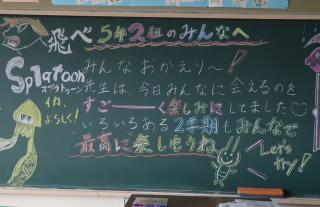 飛べ 5年2組のみんなへ
Splatoon
スプラトゥーン
イカ、よろしく!
みんなおかえり〜!
先生は、今日みんなに会えるのを
すごーーく楽しみにしてました
いろいろある2学期もみんなで
最高に楽しもうね
Let's try!